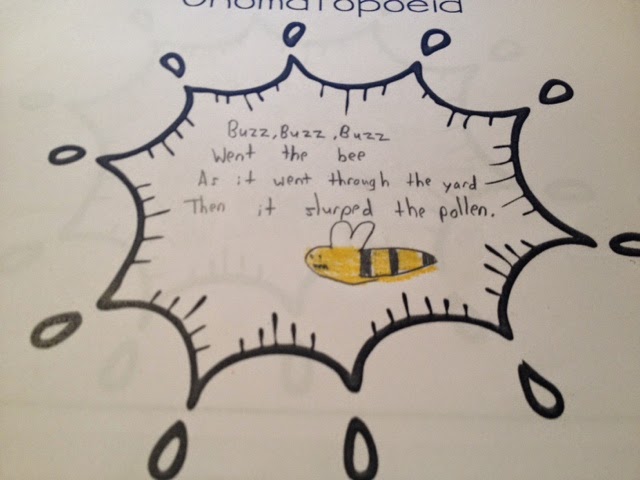 Onomatopoeia
Buzz, Buzz, Buzz
Went the bee
As it went through the yard
Then it slurped the pollen.